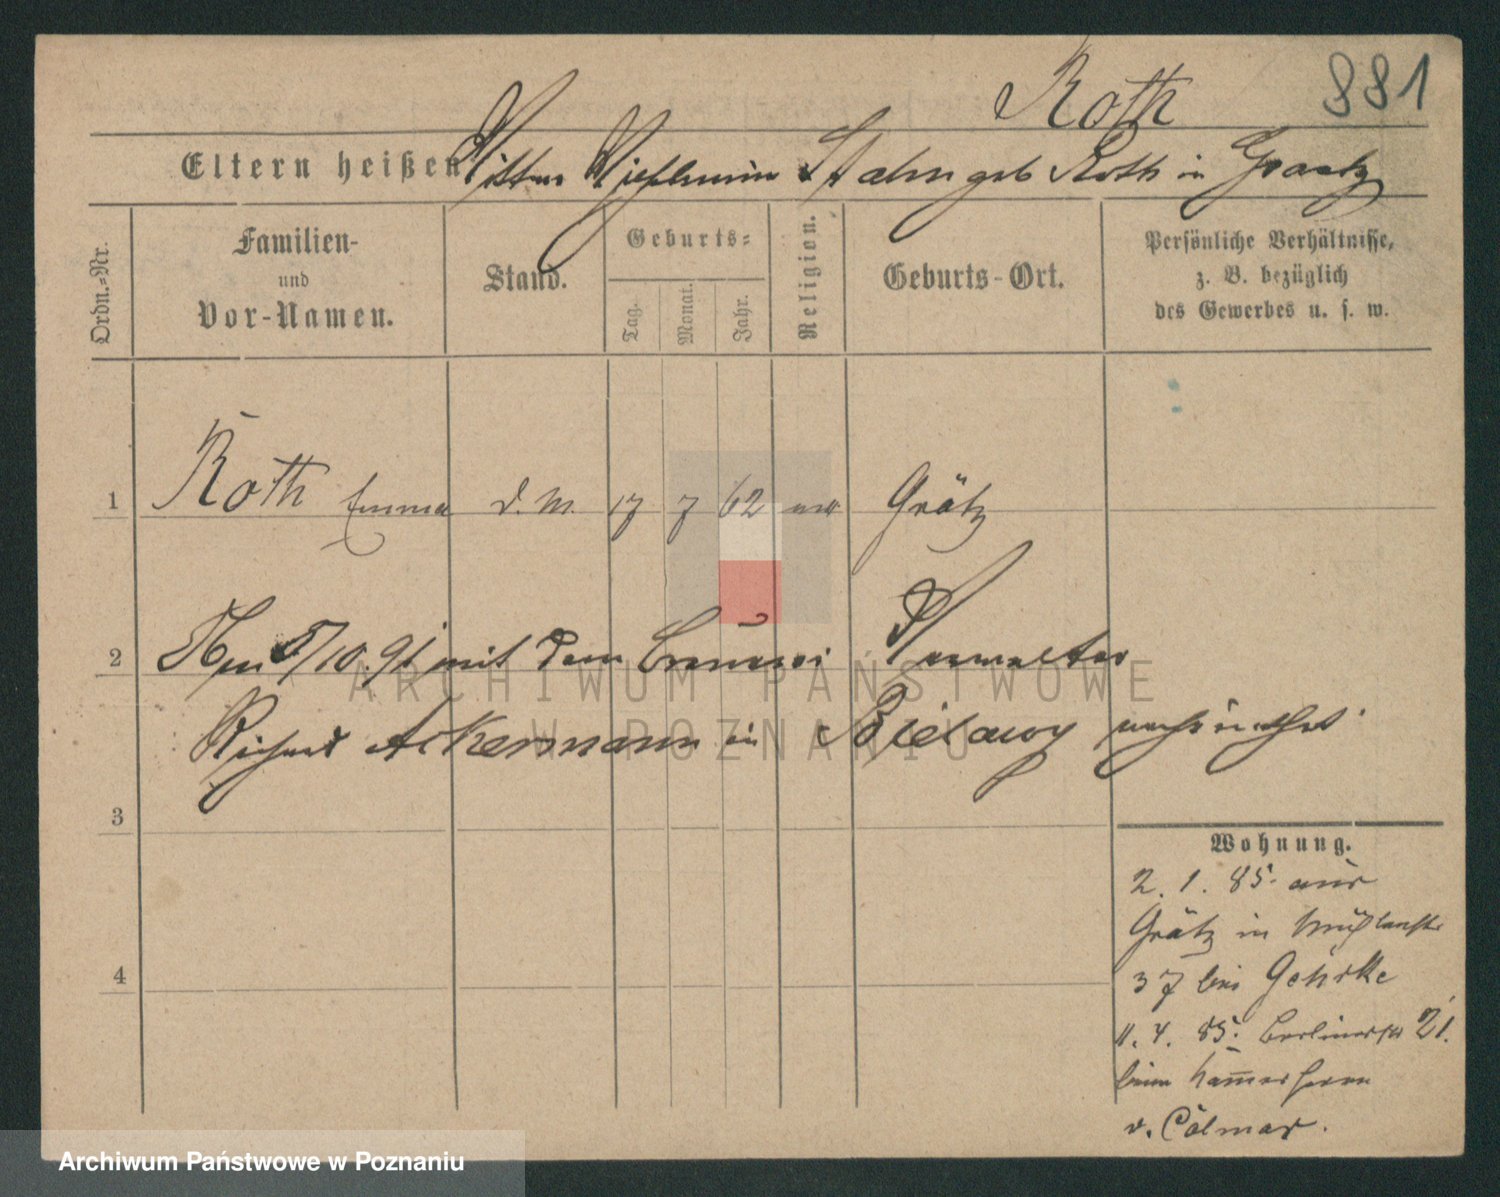 Roth 881
Eltern heißen Mutter Wilhelmine Hahn geb Roth in Graetz
Ordn.-Nr.
Familien-
und
Vor-Namen.
Stand.
Geburts-
Tag.
Monat.
Jahr.
Religion.
Geburts-Ort.
Persönliche Verhältnisse,
z. B. bezüglich
des Gewerbes u. s. w.
1 Roth Emma d. M. 17 7 62 Grätz
2 5/10. 91 mit dem Brennerei Verwalter
Richard Ackermann in Bielawy
3
4
Wohnung.
2. 1. 85. aus
Grätz in
37 bei Gehrke
11. 4. 85. Berlinerstr 21.
beim Kammerherrn
v. Colmar.
ARCHIWUM PAŃSTWOWE
W POZNANIU
Archiwum Państwowe w Poznaniu